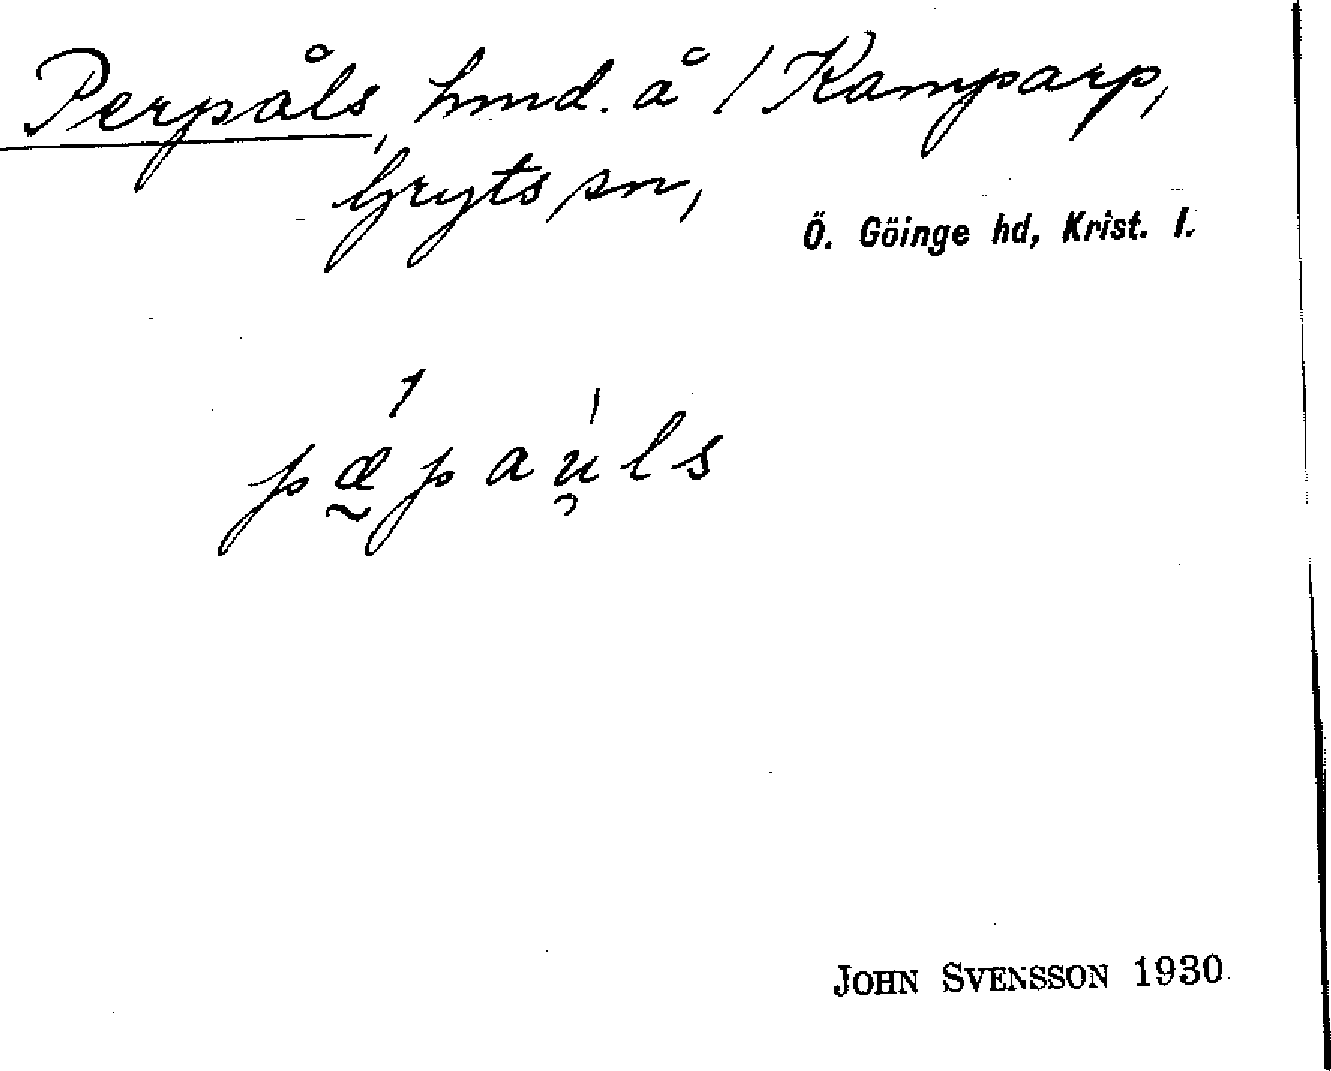 Perpåls, hmd. å / Kamparp,
Gryts sn,
Ö. Göinge hd, Krist. l.
pǽ̰pau̯̍ls
JOHN SVENSSON 1930